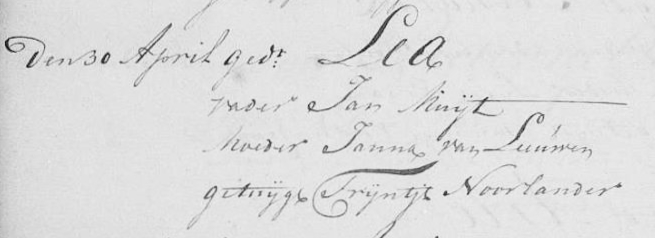 Den 30 April gedt Lea
vader Jan Kuijt
Moeder Janna van Leeúwen
getuijge Trijntje Noorlander